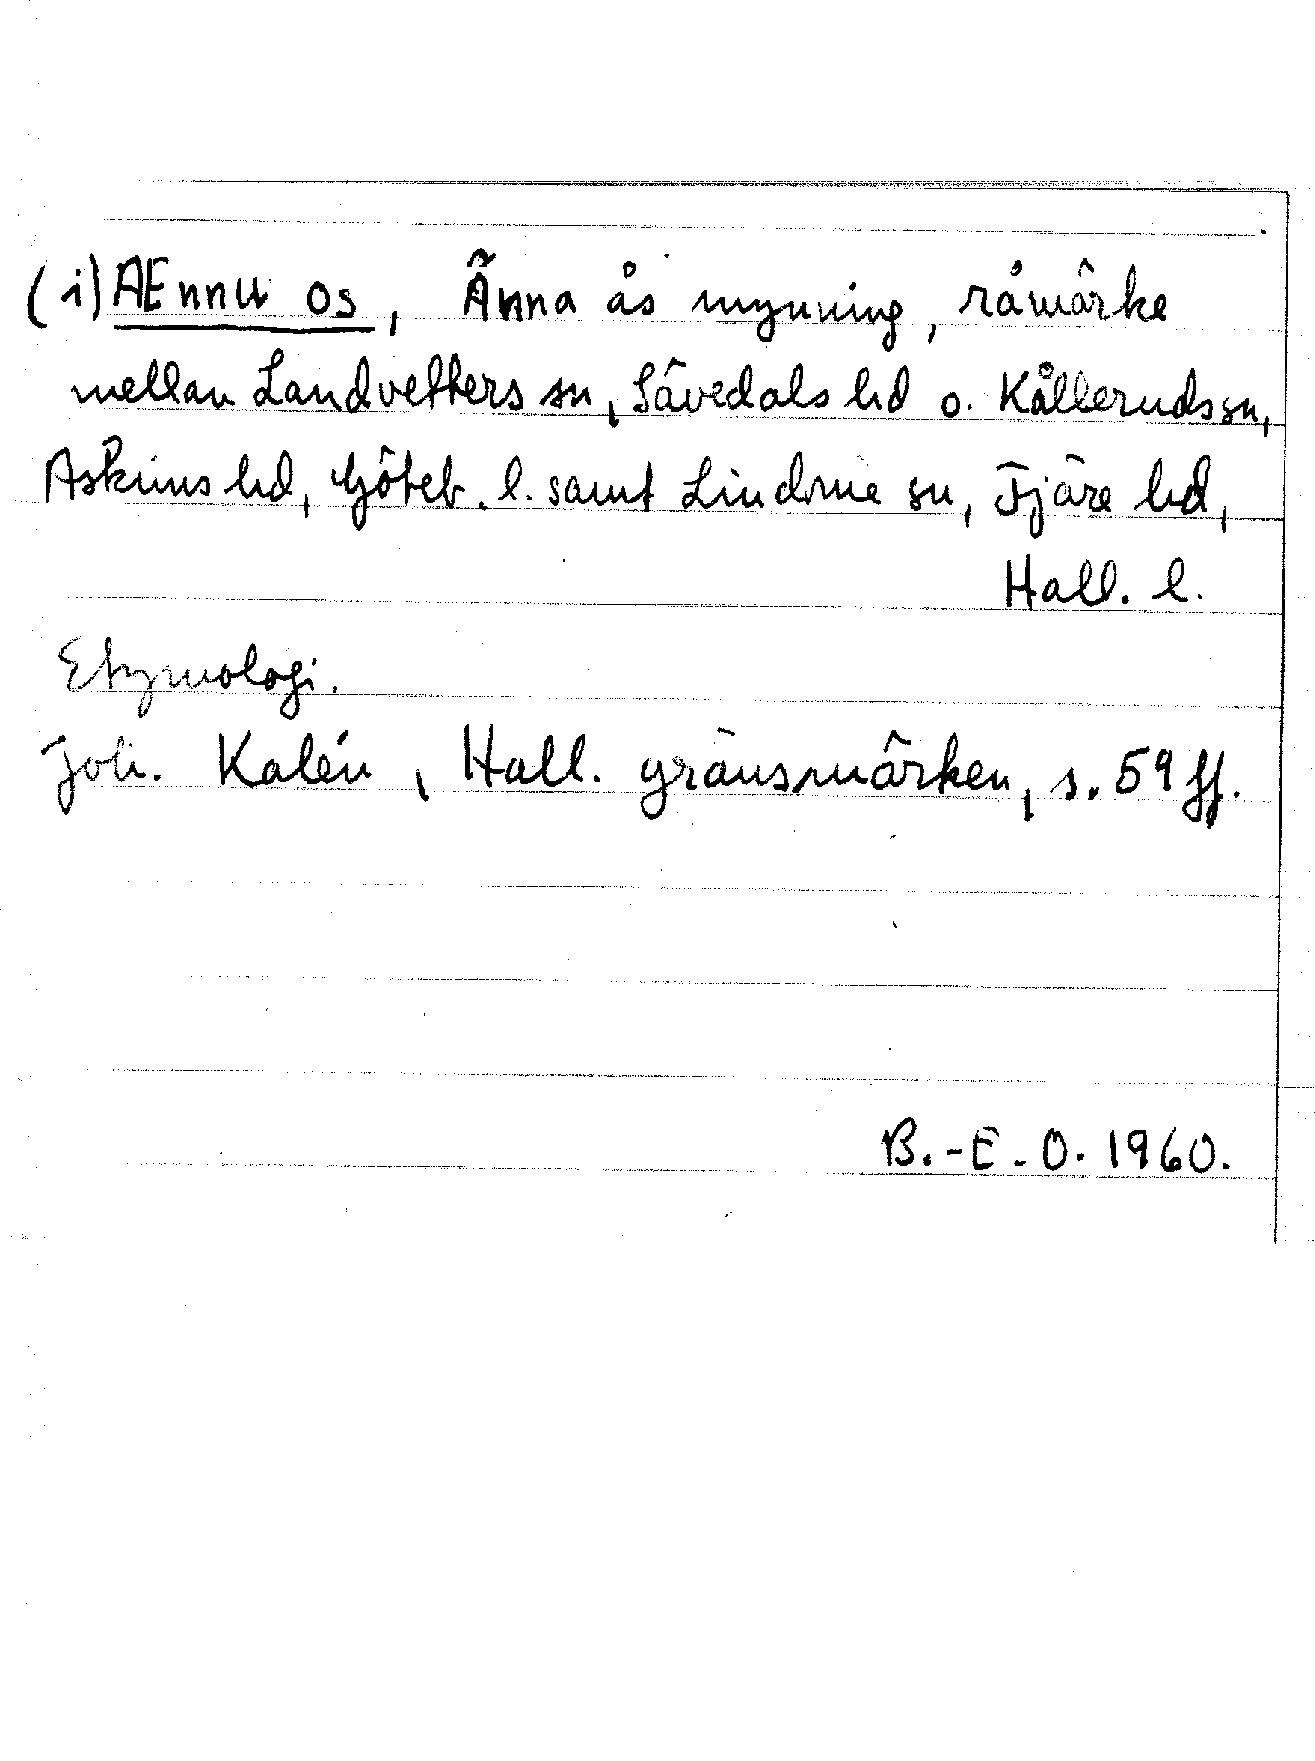 (i) AEnnu os, Änna ås mynning, råmärke
mellan Landvetters sn, Sävedals hd o. Kålleruds sn,
Askims hd, Göteb. l. samt Lindome sn, Fjäre hd,
Hall. l.
Etymologi.
Joh. Kalén, Hall. gränsmärken, s. 59 ff.
B.-E. O. 1960.